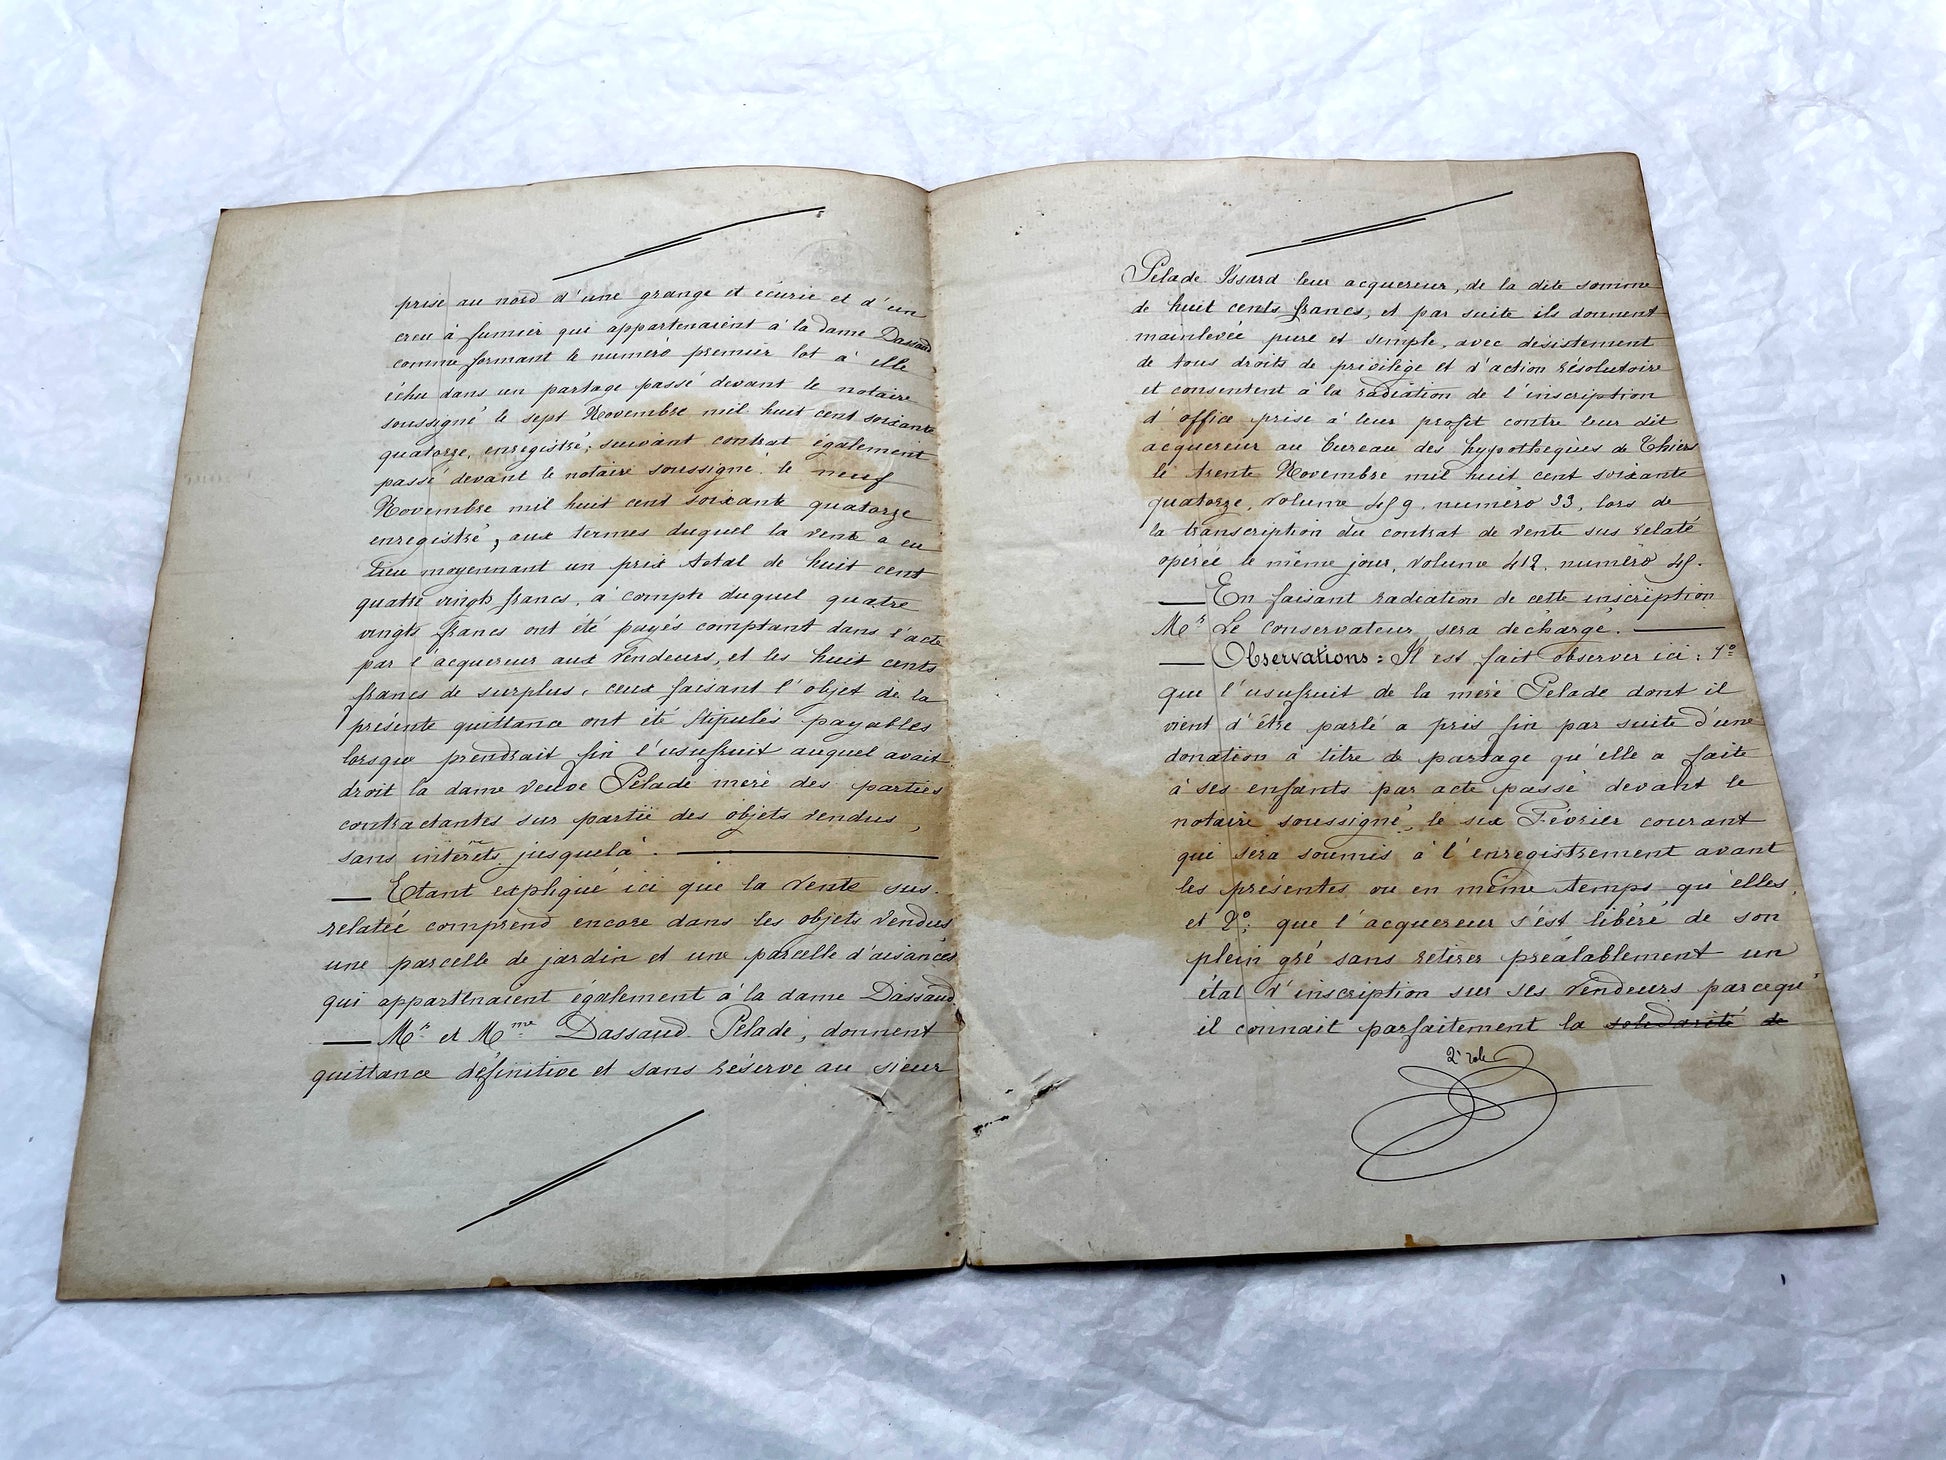 prise au nord d'une grange et écurie et d'un
creu à fumier qui appartenaient à la dame Dassaud
comme formant le numéro premier lot à elle
échu dans un partage passé devant le notaire
soussigné le sept Novembre mil huit cent soixante
quatorze, enregistré; suivant contrat également
passé devant le notaire soussigné le neuf
Novembre mil huit cent soixante quatorze
enregistré, aux termes duquel la vente a eu
lieu moyennant un prix total de huit cent
quatre vingts francs, à compte duquel quatre
vingts francs ont été payés comptant dans l'acte
par l'acquereur aux vendeurs, et les huit cents
francs de surplus, ceux faisant l'objet de la
présente quittance ont été stipulés payables
lorsque prendrait fin l'usufruit auquel avait
droit la dame veuve Pelade mère des parties
contractantes sur partie des objets vendus,
sans intérêts jusquelà.
— Etant expliqué ici que la vente sus-
relatée comprend encore dans les objets vendus
une parcelle de jardin et une parcelle d'aisances
qui appartenaient également à la dame Dassaud.
— Mr et Mme Dassaud Pelade, donnent
quittance définitive et sans réserve au sieur
Pelade Issard leur acquereur, de la dite somme
de huit cents francs, et par suite ils donnent
mainlevée pure et simple, avec désistement
de tous droits de privilège et d'action résolutoire
et consentent à la radiation de l'inscription
d'office prise à leur profit contre leur dit
acquereur au bureau des hypothèques de Thiers
le trente Novembre mil huit cent soixante
quatorze, volume numéro 33, lors de
la transcription du contrat de vente sus relaté
opérée le même jour, volume 412, numéro
— En faisant radiation de cette inscription
Mr Le conservateur sera déchargé. —
— Observations: Il est fait observer ici: 1º
que l'usufruit de la mère Pelade dont il
vient d'être parlé a pris fin par suite d'une
donation à titre de partage qu'elle a faite
à ses enfants par acte passé devant le
notaire soussigné, le six Février courant
qui sera soumis à l'enregistrement avant
les présentes ou en même temps qu'elles,
et 2º: que l'acquereur s'est libéré de son
plein gré sans retirer préalablement un
état d'inscription sur ses vendeurs parcequ'
il connait parfaitement la solidarité de
2e role